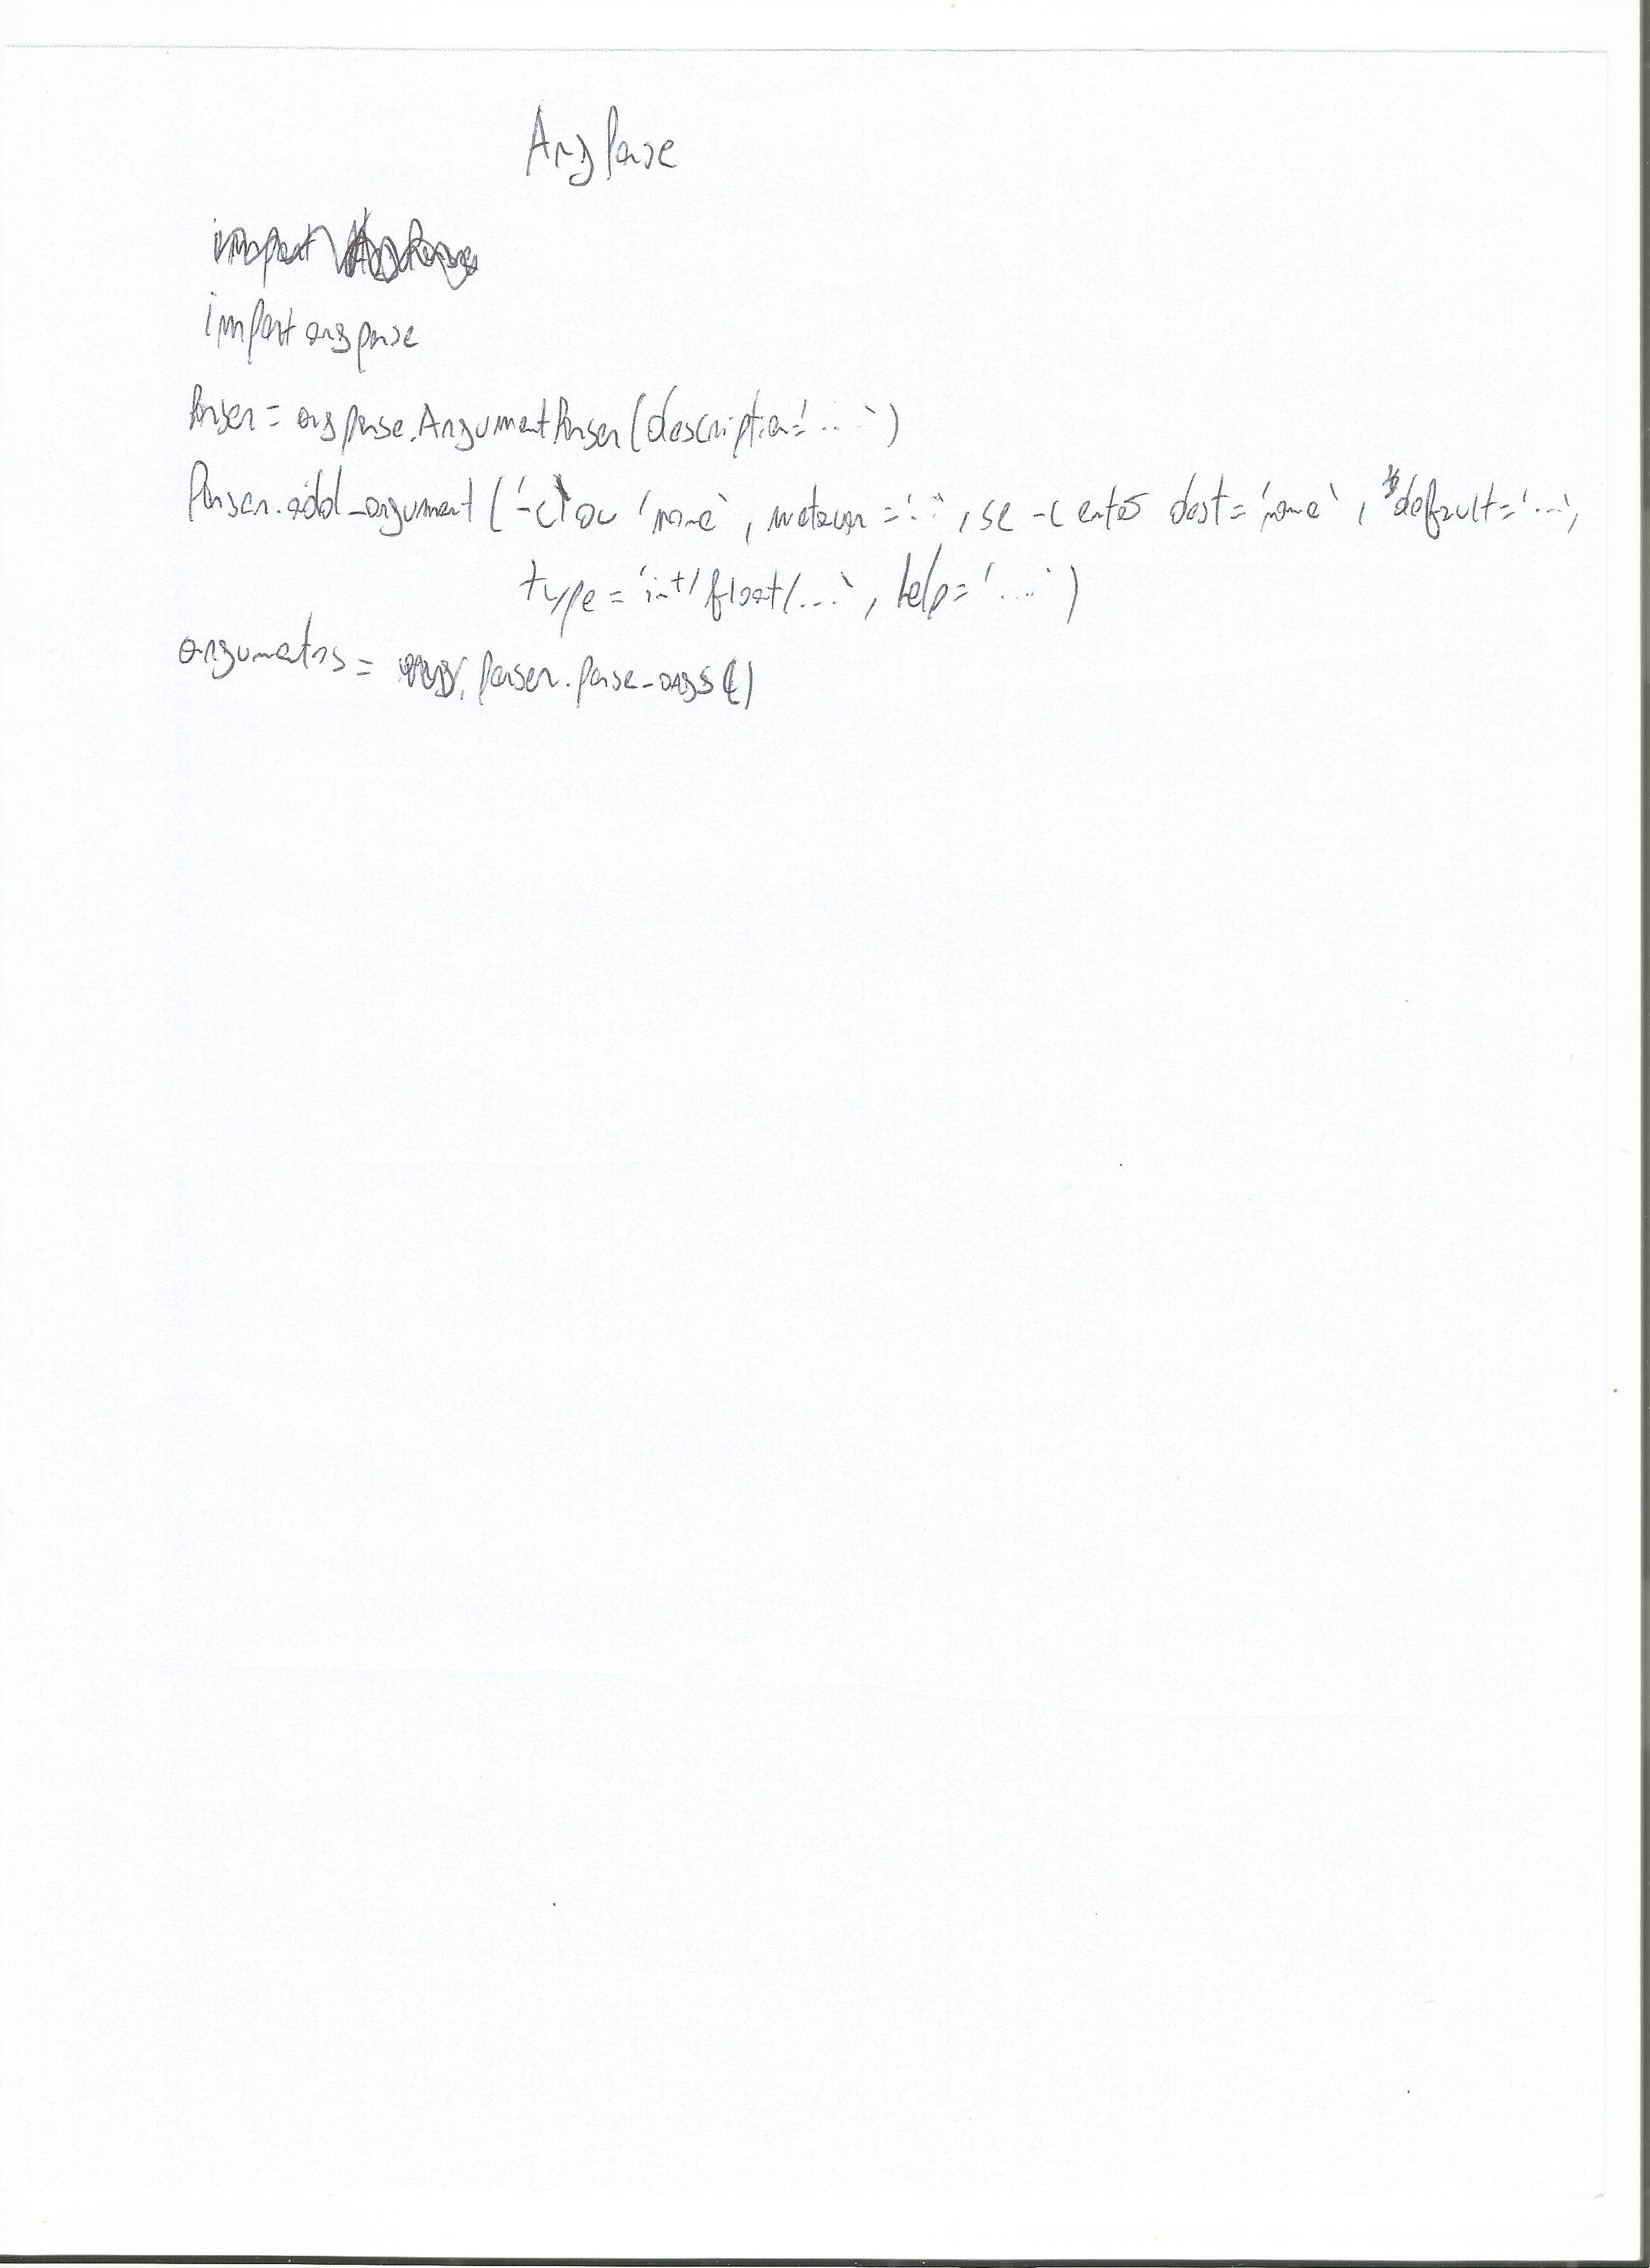 ArgParse
import argparse
Parser = argparse.ArgumentParser(description='...')
Parser.add_argument('-c' ou 'nome', metavar='..', se -c então dest='nome', *default='...',
type='int/float/...', help='...')
argumentos = parser.parse_args()